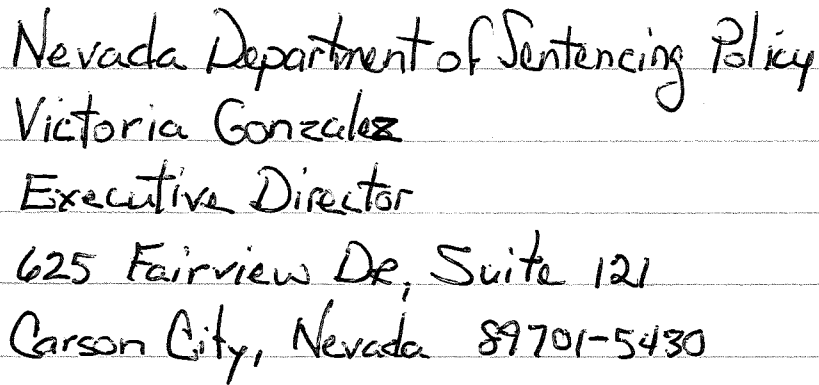 Nevada Department of Sentencing Policy
Victoria Gonzalez
Executive Director
625 Fairview DR, Suite 121
Carson City, Nevada 89701-5430